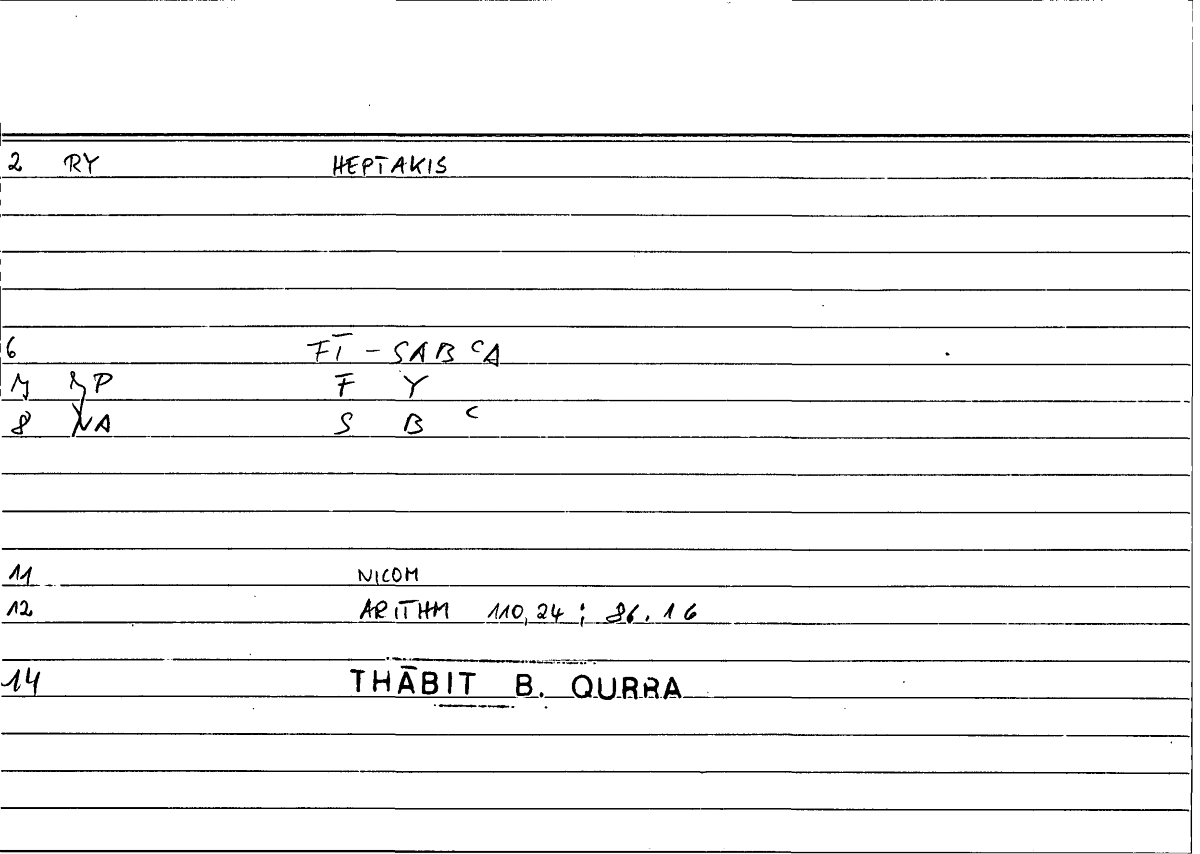 2 RY HEPTAKIS
6 FĪ - SABʿA
7 P F Y
8 NA S B ʿ
11 NICOM
12 ARITHM 110,24 ; 86.16
14 THĀBIT B. QURRA